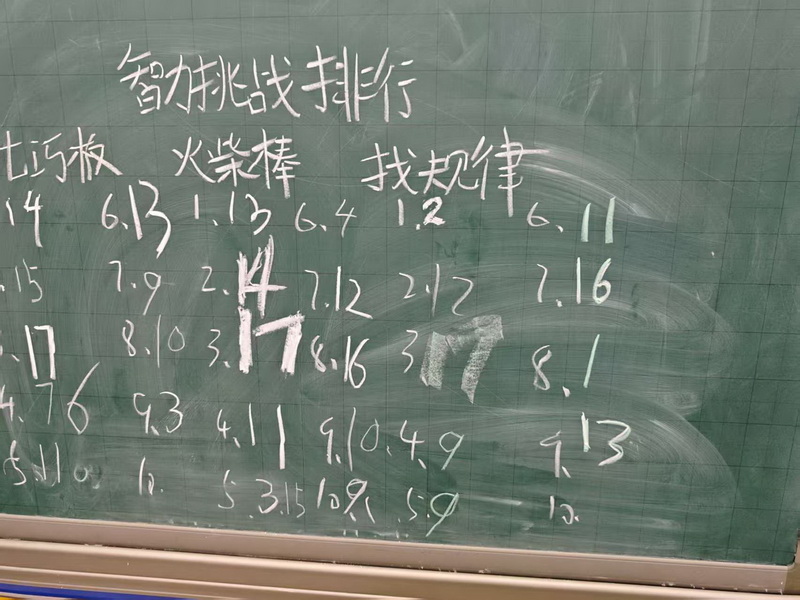 智力挑战排行
七巧板 火柴棒 找规律
.14 6.13 1.13 6.4 1.2 6.11
.15 7.9 2.14 7.12 2.12 7.16
.17 8.10 3.17 8.16 3 17 8.1
4.76 9.3 4.11 9.10. 4.9 9.13
5.110 10. 5.3.15 10 5.9 10.